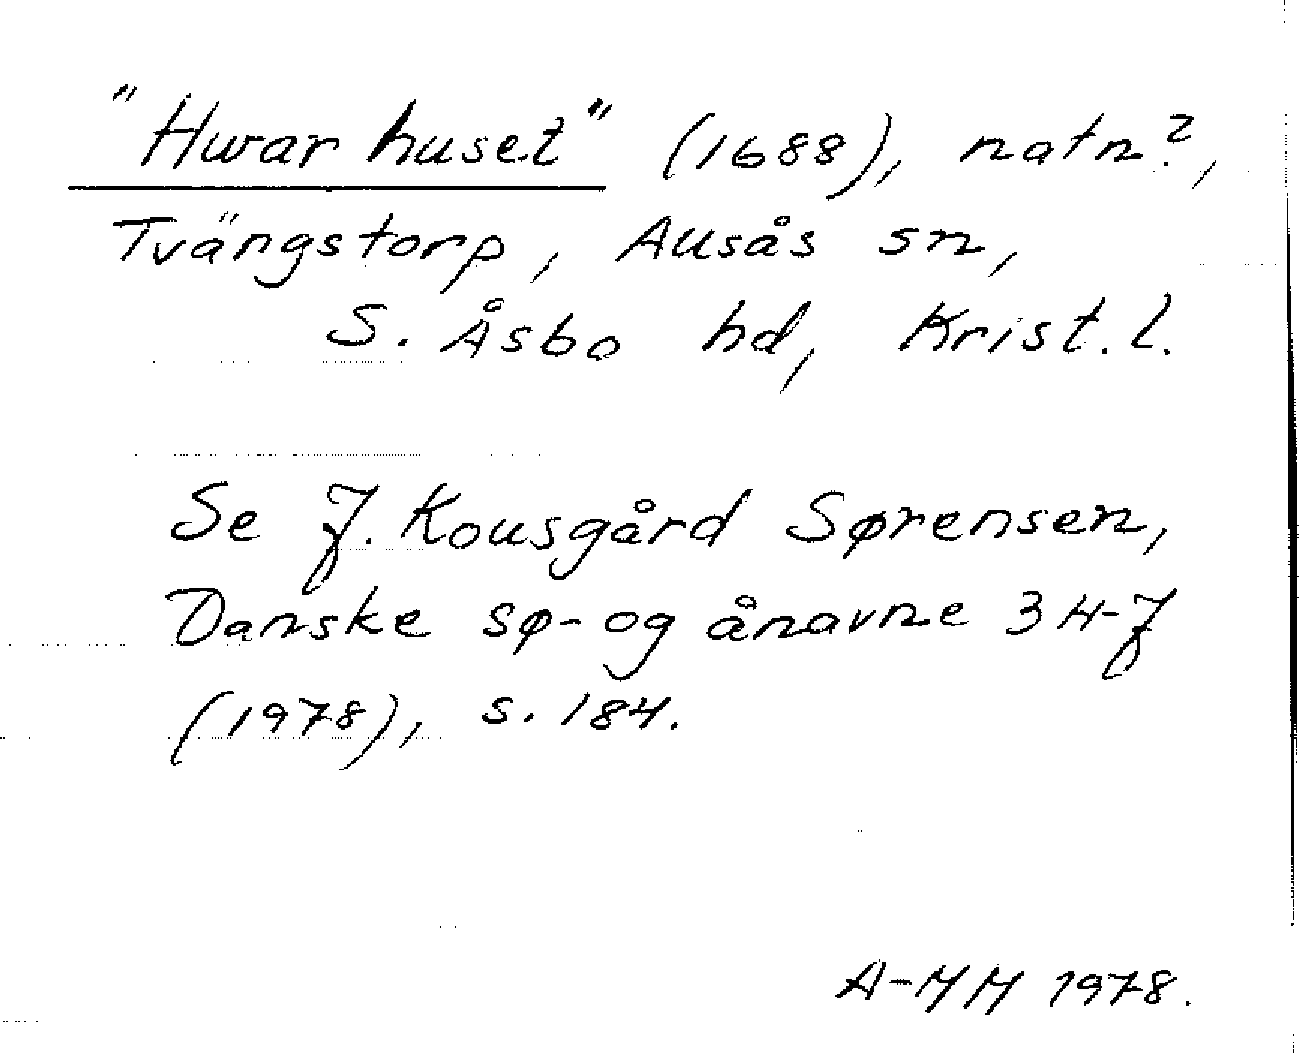 "Hwar huset" (1688), natn?,
Tvängstorp, Ausås sn,
S. Åsbo hd, Krist. l.
Se J. Kousgård Sørensen,
Danske sø- og ånavne 3 H-J
(1978), s. 184.
A-MM 1978.